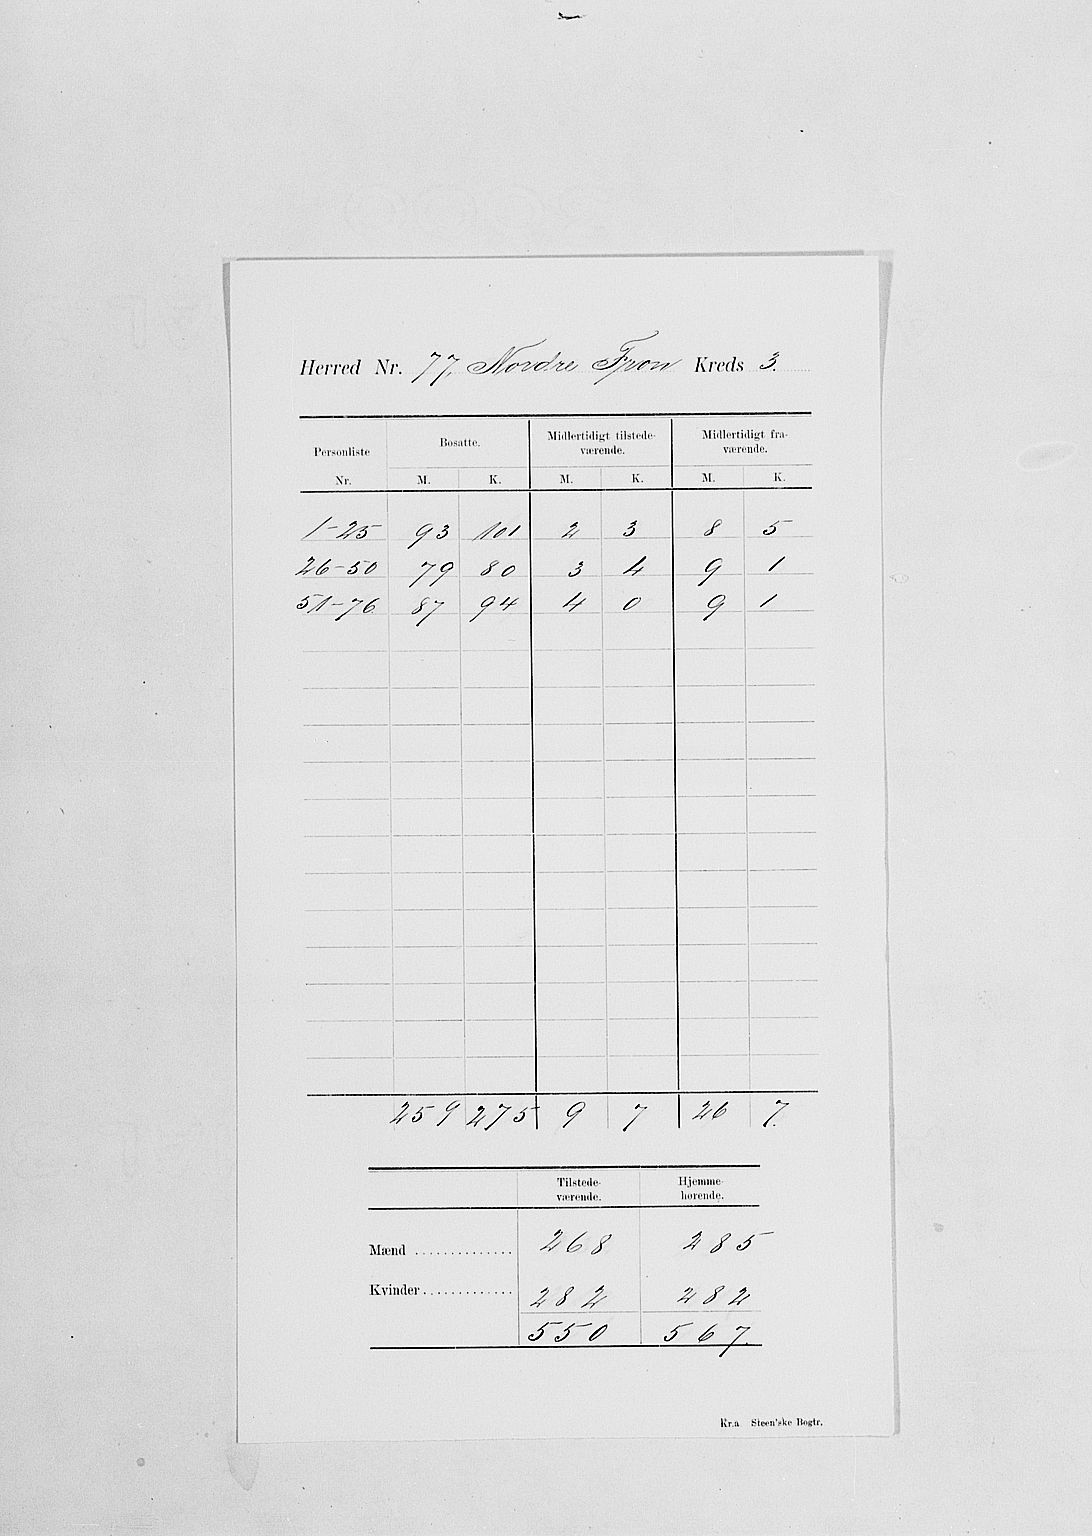 Herred Nr. 77, Nordre Fron Kreds 3.
Personliste Nr. Bosatte. Midlertidigt tilstede-værende. Midlertidigt fra-værende.
M. K. M. K. M. K.
1-25 93 101 2 3 8 5
26-50 79 80 3 4 9 1
51-76 87 94 4 0 9 1
259 275 9 7 26 7.
Tilstede-værende. Hjemme-hørende.
Mænd .............. 268 285
Kvinder............. 282 282
550 567.
Kr.a Steen'ske Bogtr.